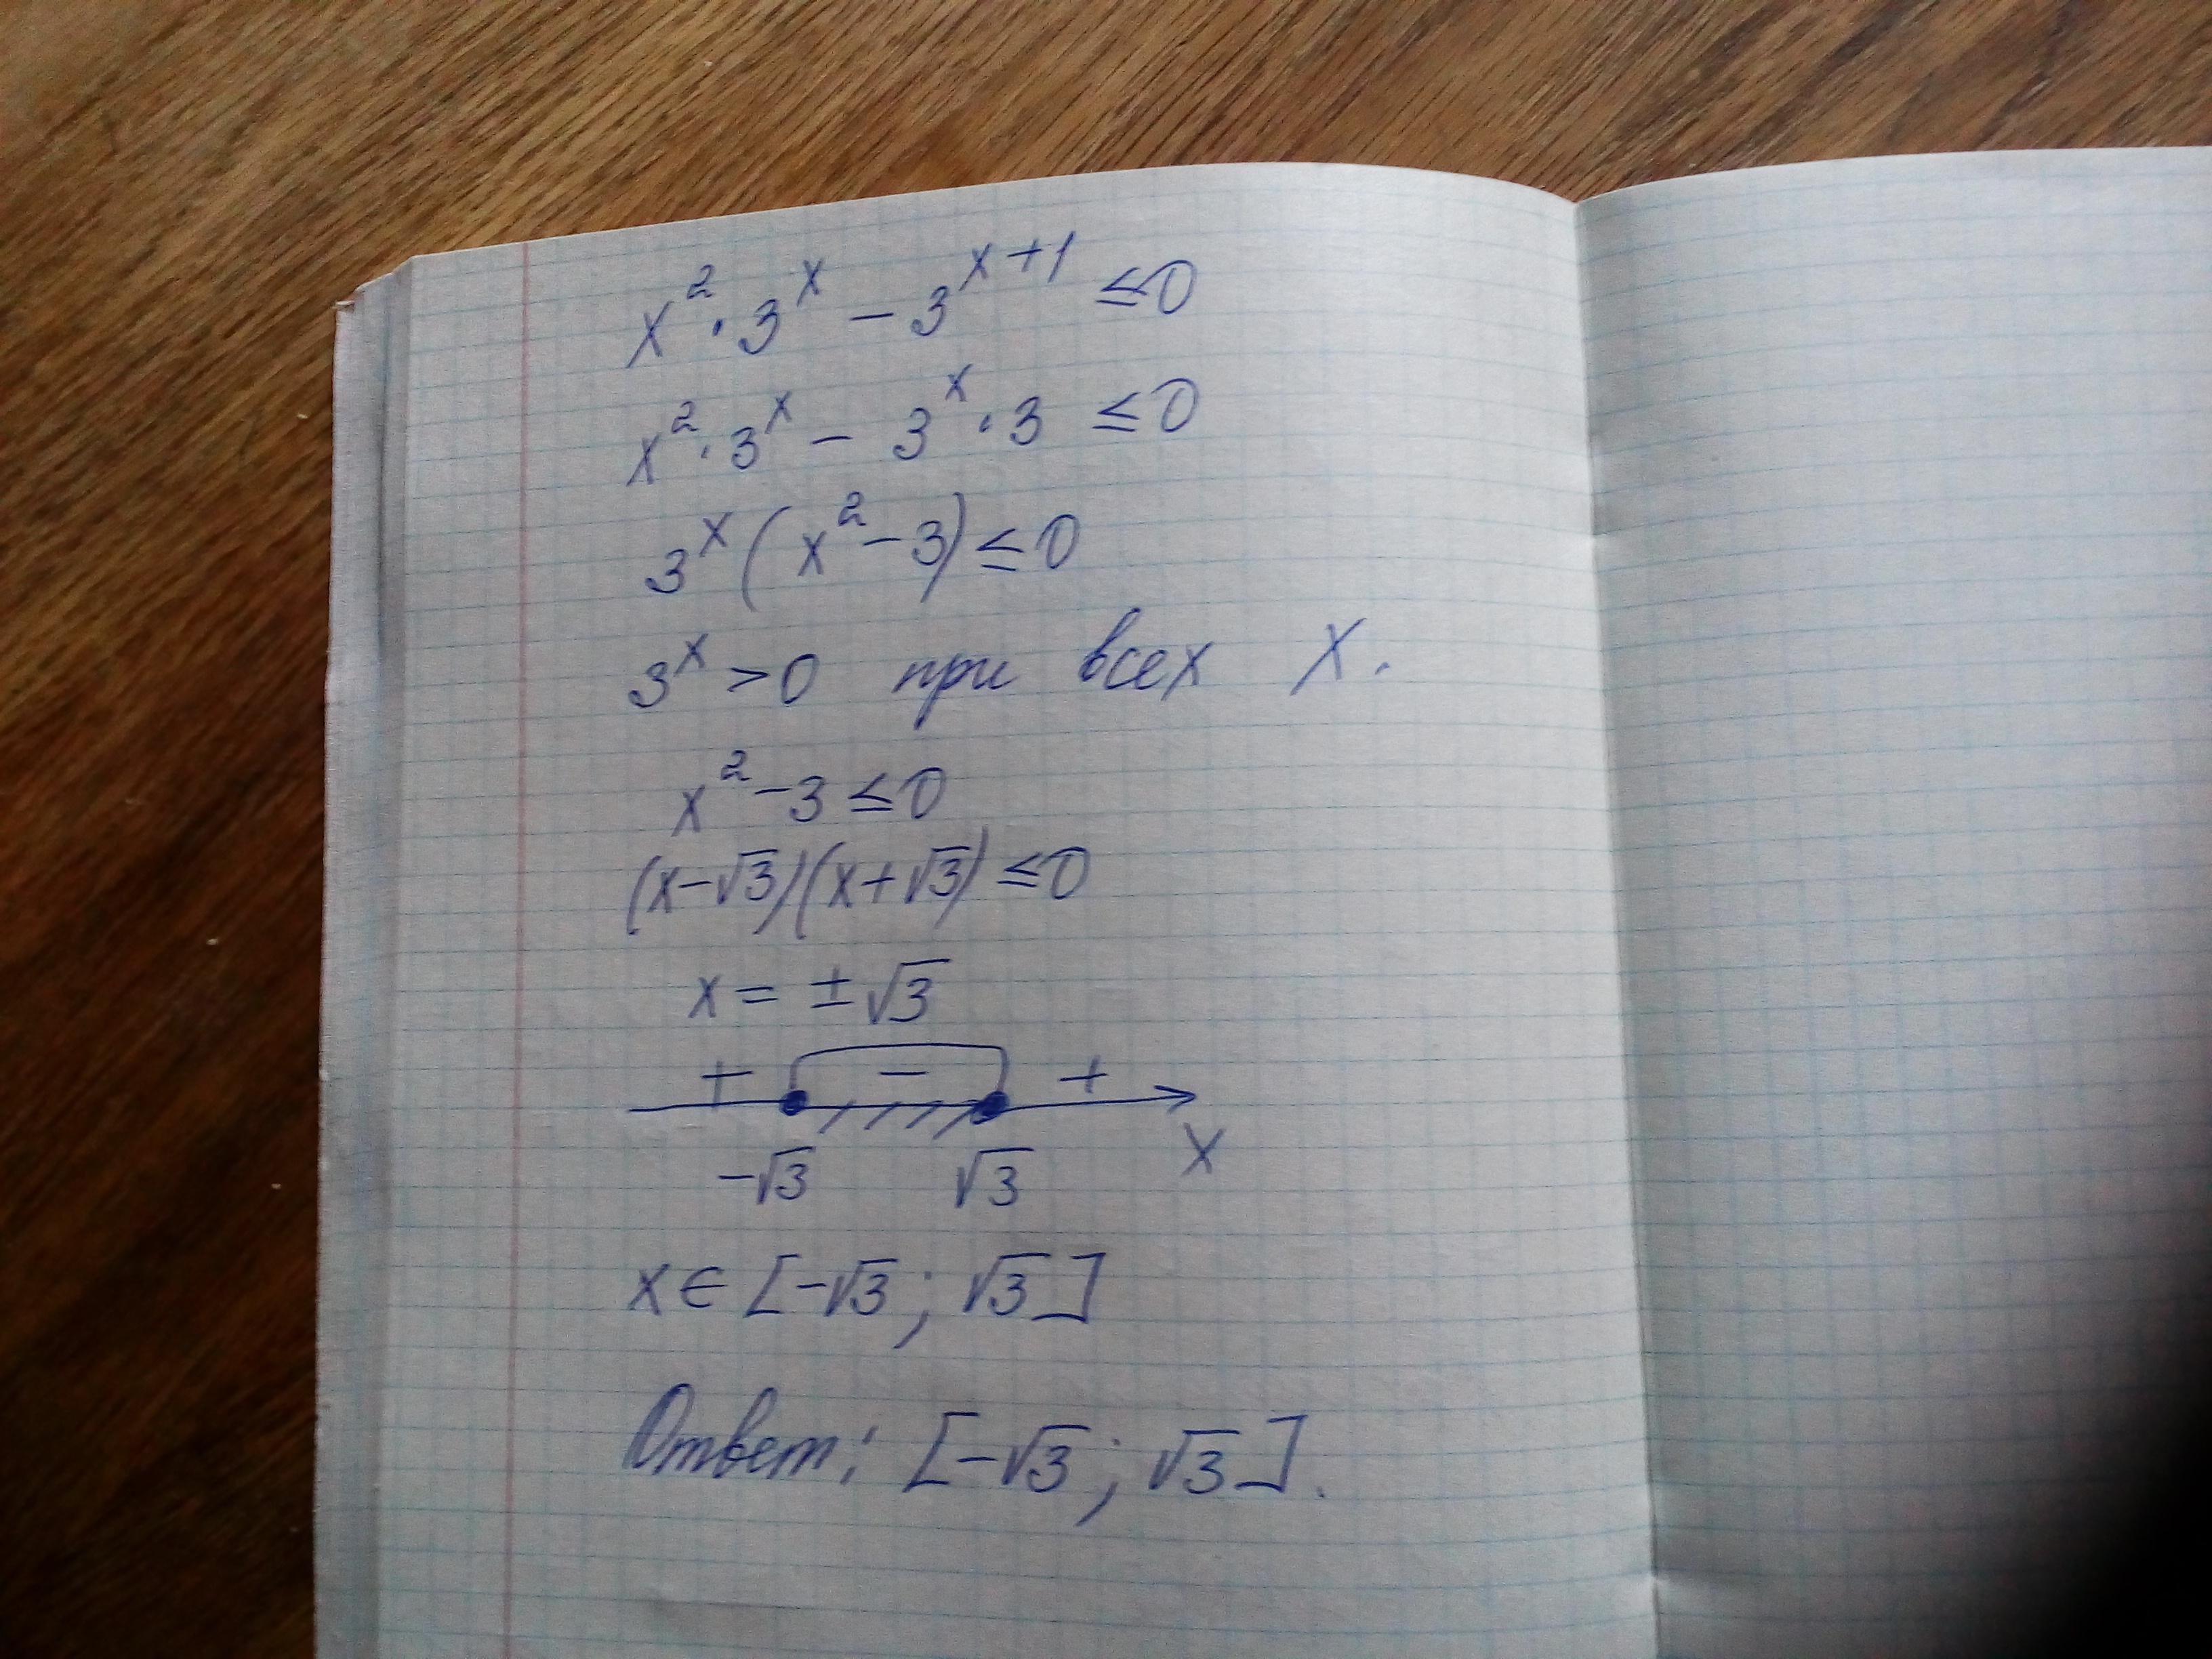 x² · 3ˣ − 3ˣ⁺¹ ≤ 0
x² · 3ˣ − 3ˣ · 3 ≤ 0
3ˣ (x² − 3) ≤ 0
3ˣ > 0 при всех X.
x² − 3 ≤ 0
(x − √3)(x + √3) ≤ 0
x = ± √3
+ − +
−√3 √3 X
x ∈ [−√3 ; √3]
Ответ: [−√3 ; √3].